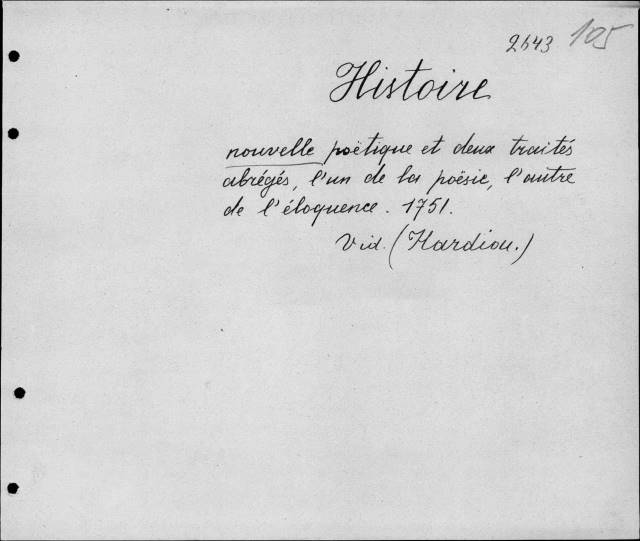 2643 105
Histoire
nouvelle poëtique et deux traités
abrégés, l'un de la poësie, l'autre
de l'éloquence. 1751.
Vid. (Hardion.)